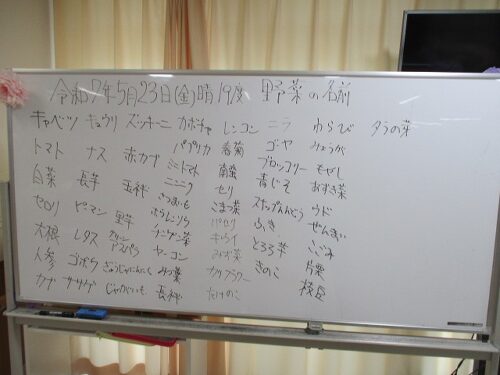 令和7年5月23日(金)晴19度 野菜の名前
キャベツ キュウリ ズッキーニ カボチャ レンコン ニラ わらび タラの芽
トマト ナス 赤カブ パプリカ 春菊 ゴーヤ みょうが
白菜 長芋 玉ネギ ミニトマト 南蛮 ブロッコリー もやし
セロリ ピーマン 里芋 ニンニク セリ 青じそ あずき菜
大根 レタス グリーンアスパラ さつまいも こまつ菜 スナップえんどう ウド
人参 ゴボウ ぎょうじゃにんにく ほうれんソウ パセリ ふき ぜんまい
カブ ササゲ じゃがいも チンゲン菜 みず菜 とろろ芋 こごみ
ヤーコン カリフラワー きのこ 片栗
長ネギ たけのこ 枝豆